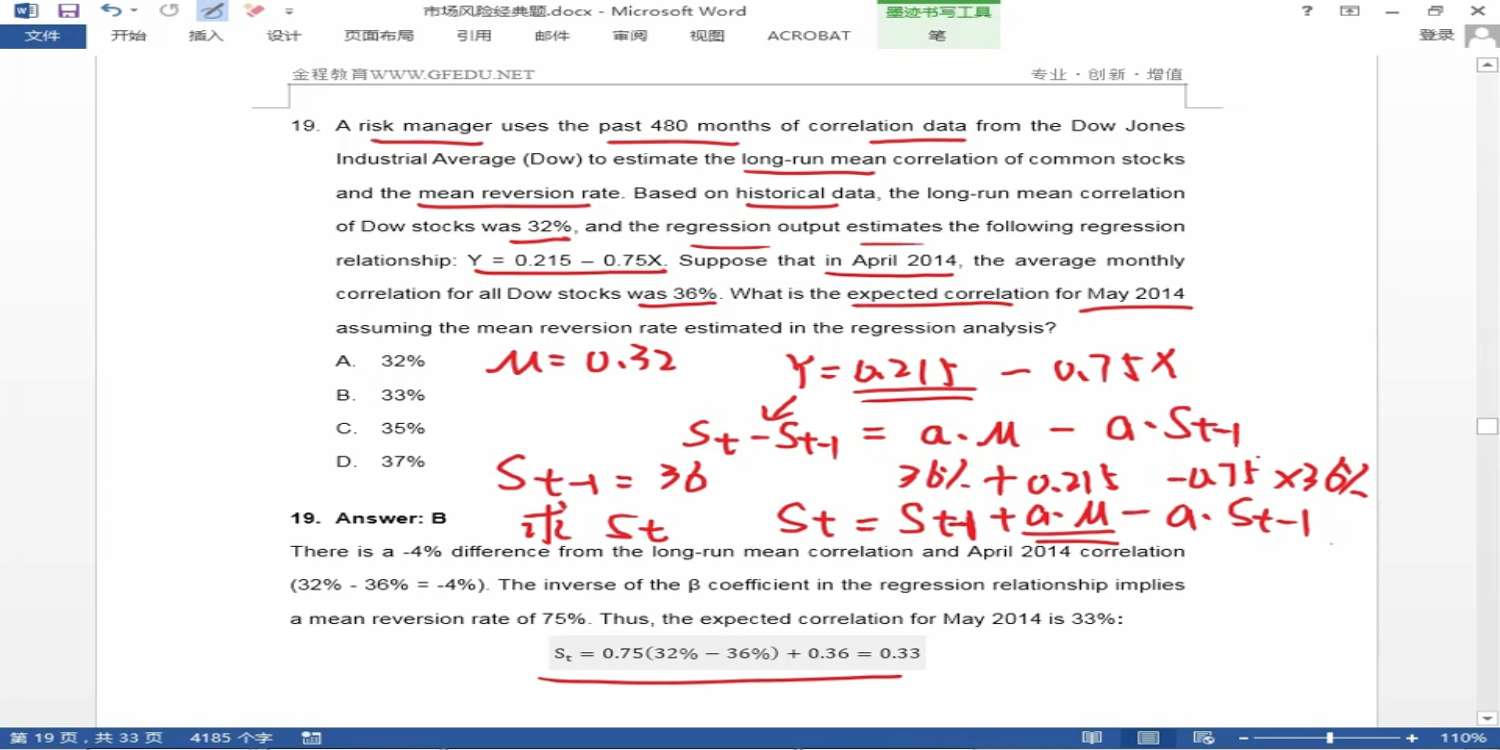 市场风险经典题.docx - Microsoft Word
墨迹书写工具
文件 开始 插入 设计 页面布局 引用 邮件 审阅 视图 ACROBAT 笔 登录
金程教育WWW.GFEDU.NET 专业·创新·增值
19. A risk manager uses the past 480 months of correlation data from the Dow Jones
Industrial Average (Dow) to estimate the long-run mean correlation of common stocks
and the mean reversion rate. Based on historical data, the long-run mean correlation
of Dow stocks was 32%, and the regression output estimates the following regression
relationship: Y = 0.215 – 0.75X. Suppose that in April 2014, the average monthly
correlation for all Dow stocks was 36%. What is the expected correlation for May 2014
assuming the mean reversion rate estimated in the regression analysis?
A. 32%
B. 33%
C. 35%
D. 37%
μ = 0.32
Y = 0.215 - 0.75X
St - St-1 = a·μ - a·St-1
St-1 = 36
36% + 0.215 - 0.75 × 36%
求 St
St = St-1 + a·μ - a·St-1
19. Answer: B
There is a -4% difference from the long-run mean correlation and April 2014 correlation
(32% - 36% = -4%). The inverse of the β coefficient in the regression relationship implies
a mean reversion rate of 75%. Thus, the expected correlation for May 2014 is 33%:
St = 0.75(32% − 36%) + 0.36 = 0.33
第 19 页，共 33 页 4185 个字 110%